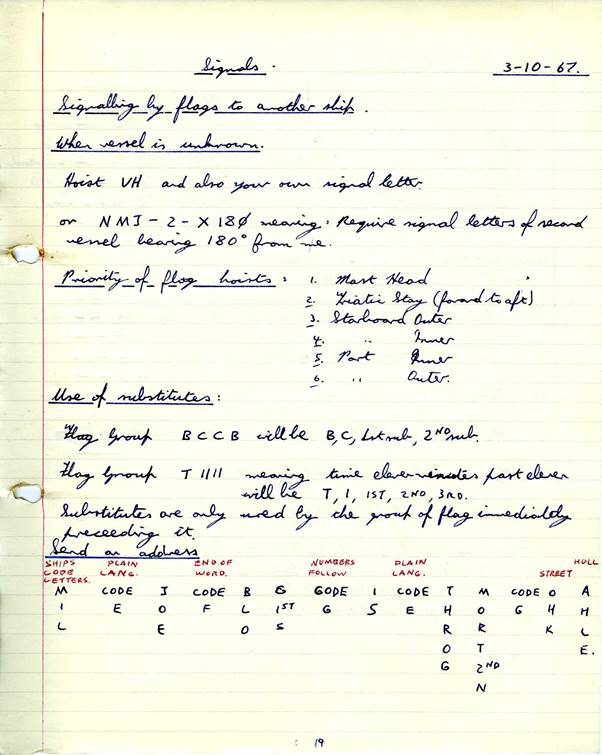 Signals. 3-10-67.
Signalling by flags to another ship.
When vessel is unknown.
Hoist VH and also your own signal letter.
or NMJ - 2 - X 180 meaning: Require signal letters of second
vessel bearing 180° from me.
Priority of flag hoists: 1. Mast Head
2. Triatic Stay (forard to aft)
3. Starboard Outer
4. " Inner
5. Port Inner
6. " Outer.
Use of substitutes:
Flag Group B C C B will be B, C, 1st sub, 2ND sub.
Flag Group T 1111 meaning time eleven minutes past eleven
will be T, 1, 1ST, 2ND, 3RD.
Substitutes are only used by the group of flag immediately
preceeding it.
Send an address
SHIPS PLAIN END OF NUMBERS PLAIN HULL
CODE LANG. WORD. FOLLOW LANG. STREET
LETTERS.
M CODE J CODE B G CODE 1 CODE T M CODE O A
I E O F L 1ST G 5 E H O G H H
L E O S R R K L
O T E.
G 2ND
N
19